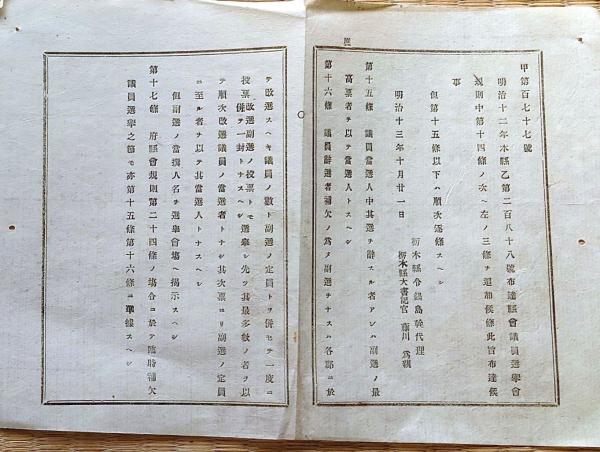 甲第百七十七號
明治十二年本縣乙第二百八十八號布達縣會議員選擧會
規則中第十四條ノ次ヘ左ノ三條ヲ追加候條此旨布達候
事
但第十五條以下ハ順次逐條スヘシ
明治十三年十月廿一日
栃木縣令鍋島幹代理
栃木縣大書記官 藤川爲親
第十五條 議員當選人中其選ヲ辭スル者アレハ副選ノ最
高票者ヲ以テ當選人トスヘシ
第十六條 議員辭選者補欠ノ爲メ副選ヲナスハ各郡ニ於
テ改選スヘキ議員ノ數ト副選ノ定員トヲ併セテ一度ニ
投票 改選副選ノ投票トモ併セテ一封トナスヘシ 選擧シ先ツ其最多數ノ者ヲ以
テ順次改選議員ノ當選者トナシ其次票ヨリ副選ノ定員
ニ至ル者ヲ以テ其當選人トナスヘシ
但副選ノ當撰人名ヲ選擧會塲ヘ揭示スヘシ
第十七條 府縣會規則第二十四條ノ塲合ニ於テ臨時補欠
議員選擧之節モ亦第十五條第十六條ニ準據スヘシ